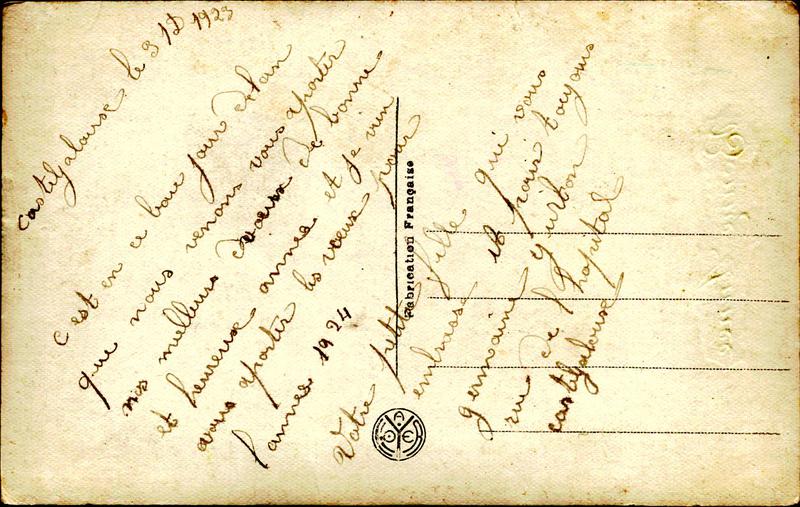 Castelgalouse le 31D 1923
C est en ce bau jour de lan
que nous venons vous aporter
nos meilleurs de vœux de bonne
et heureuse annee et je vien
vous aporter les vœux pour
l annee 1924
Votre petite fille qui vous
embrasse et pour toujours
germaine
rue de l hopital
castelgalouse
Fabrication Française